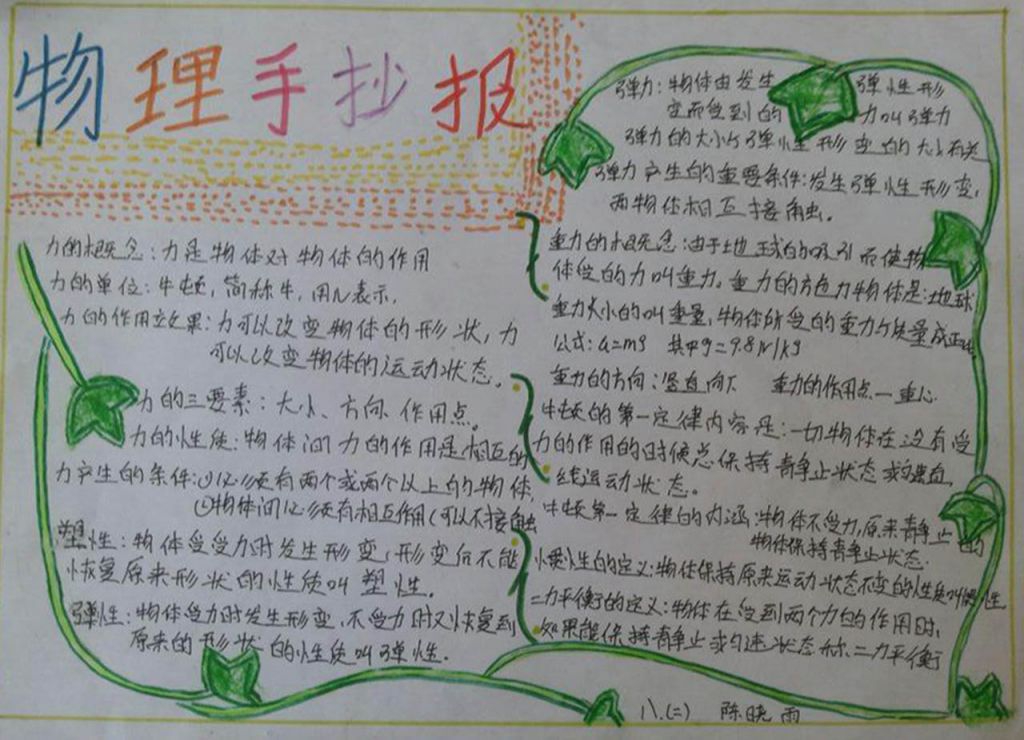 物理手抄报
力的概念：力是物体对物体的作用
力的单位：牛顿，简称牛，用N表示，
力的作用效果：力可以改变物体的形状，力
可以改变物体的运动状态。
力的三要素：大小、方向、作用点。
力的性质：物体间力的作用是相互的
力产生的条件：①必须有两个或两个以上的物体，
②物体间必须有相互作用（可以不接触
塑性：物体受受力时发生形变，形变后不能
恢复原来形状的性质叫塑性。
弹性：物体受力时发生形变，不受力时又恢复到
原来的形状的性质叫弹性．
弹力：物体由发生弹性形
变而受到的力叫弹力
弹力的大小与弹性形变的大小有关
弹力产生的重要条件：发生弹性形变，
两物体相互接触。
重力的概念：由于地球的吸引而使物
体受的力叫重力。重力的力物体是：地球
重力大小的叫重量，物体所受的重力与质量成正比
公式：G=mg 其中g=9.8N/kg
重力的方向：竖直向下 重力的作用点—重心
牛顿的第一定律内容是：一切物体在没有受
力的作用的时候总保持静止状态或匀速直
线运动状态。
牛顿第一定律的内涵：物体不受力，原来静止的
物体保持静止状态．
惯性的定义：物体保持原来运动状态不变的性质叫惯性
二力平衡的定义：物体在受到两个力的作用时，
如果能保持静止或匀速状态称二力平衡
八（二） 陈晓雨